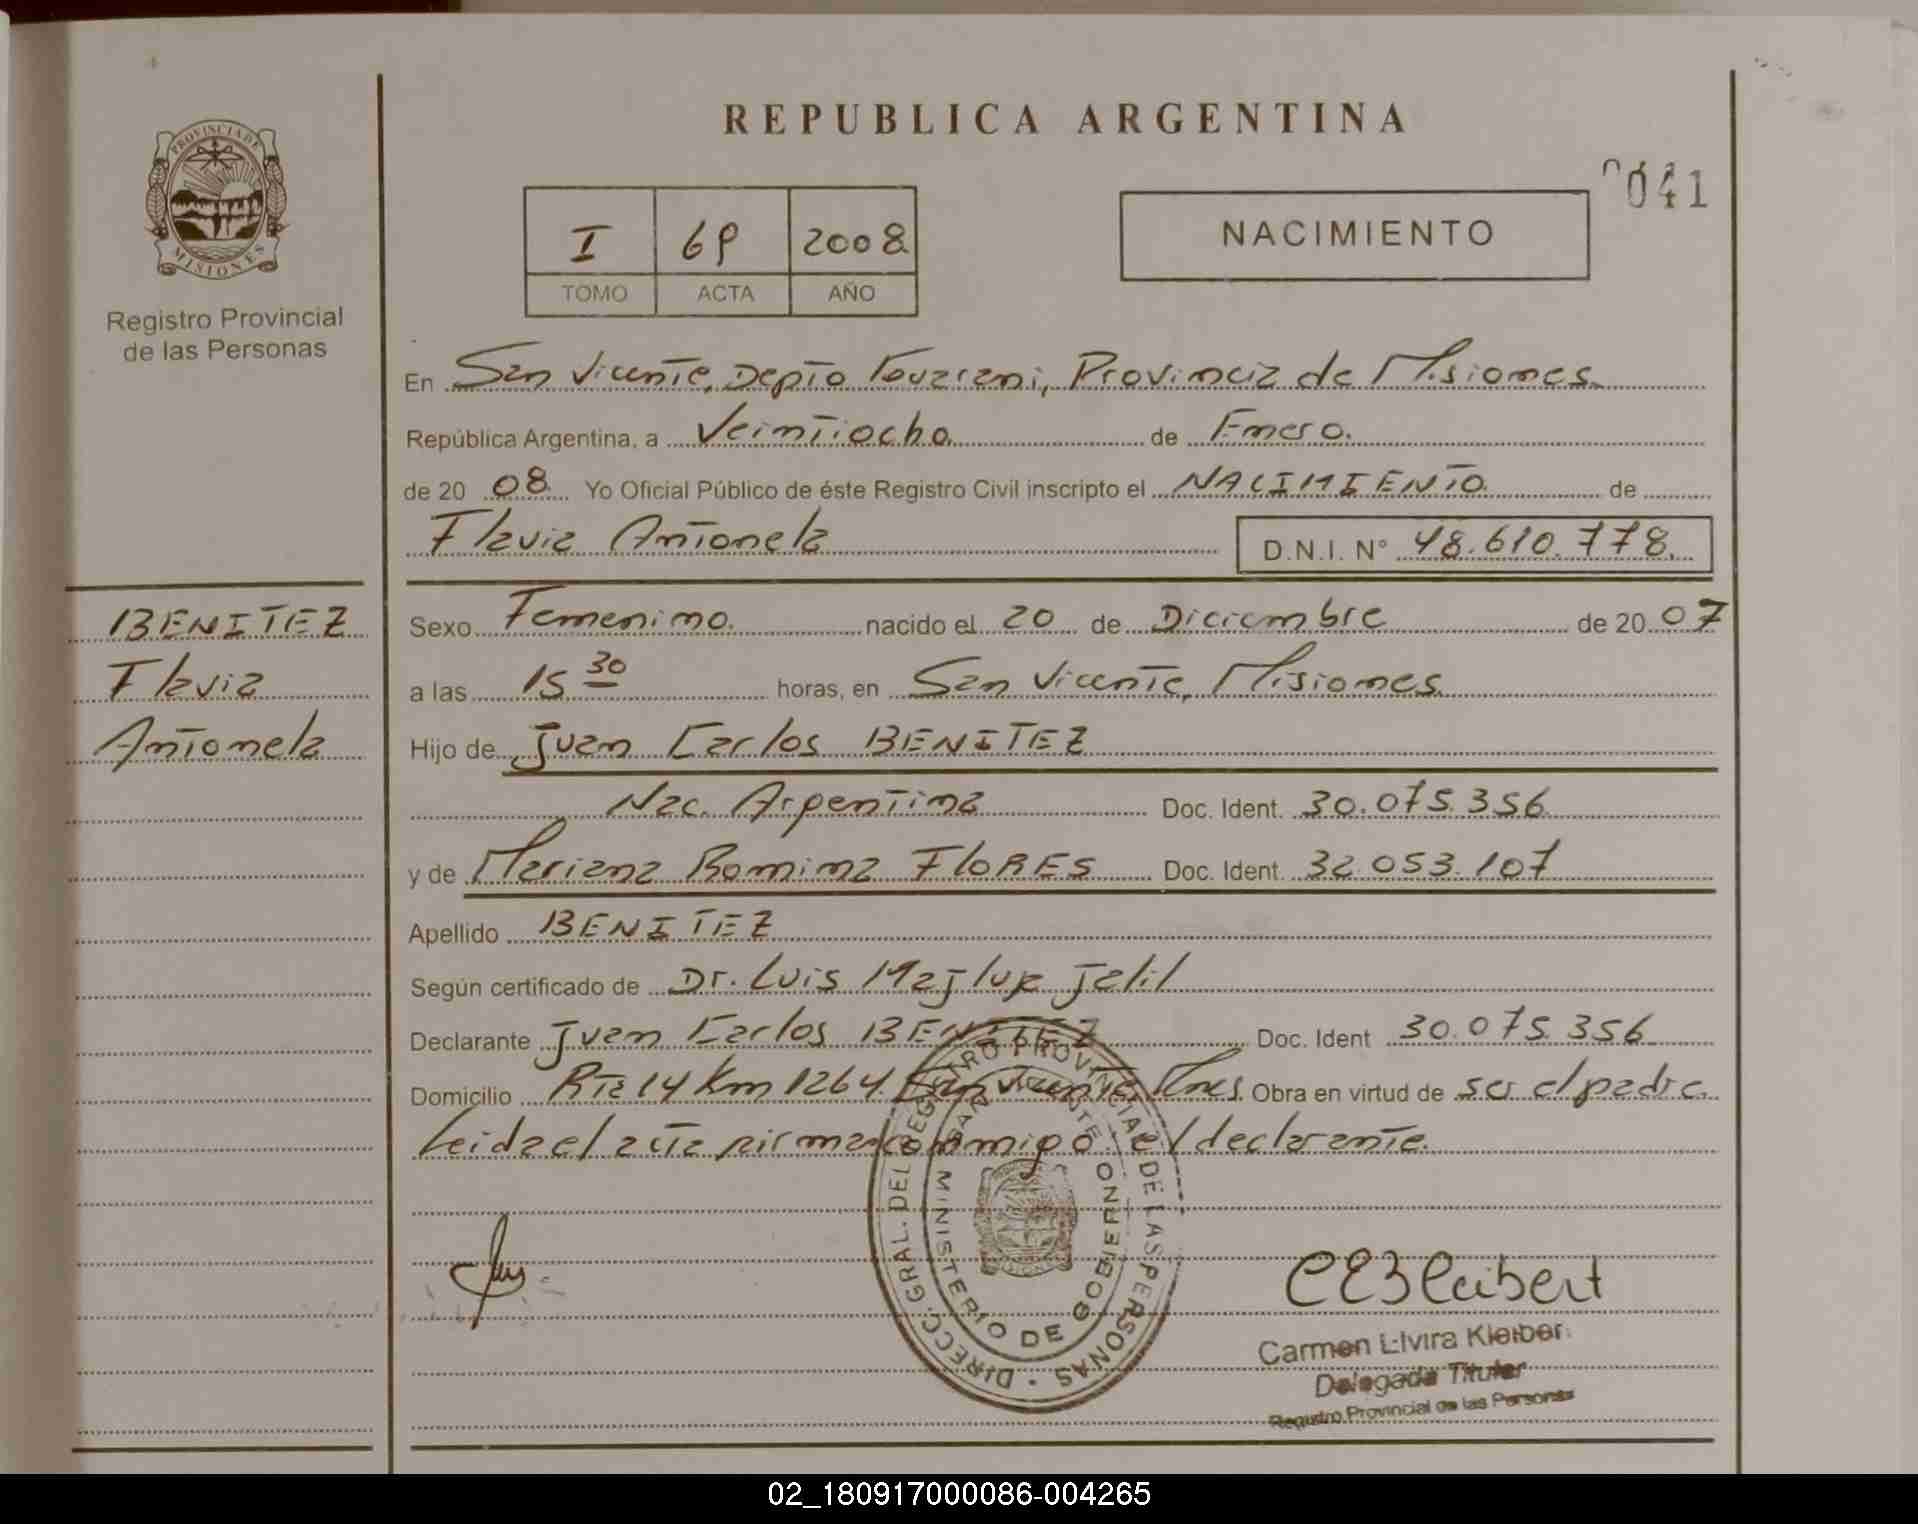 REPUBLICA ARGENTINA
041
PROVINCIA DE
MISIONES
Registro Provincial
de las Personas
I 69 2008
TOMO ACTA AÑO
NACIMIENTO
En San Vicente, Depto Guarani, Provincia de Misiones
República Argentina, a Veintiocho de Enero.
de 20 08 Yo Oficial Público de éste Registro Civil inscripto el NACIMIENTO de
Flavia Antonela D.N.I. N° 48.610.778.
BENITEZ
Flavia
Antonela
Sexo Femenino. nacido el 20 de Diciembre de 20 07
a las 15 30 horas, en San Vicente, Misiones
Hijo de Juan Carlos BENITEZ
Nac. Argentina Doc. Ident. 30.075.356
y de Mariana Romina FLORES Doc. Ident. 32.053.107
Apellido BENITEZ
Según certificado de Dr. Luis Majlup Jalil
Declarante Juan Carlos BENITEZ Doc. Ident 30.075.356
Domicilio Rta 14 Km 1264 San Vicente, Mnes. Obra en virtud de ser el padre.
Leida el acta firma conmigo el declarante.
DIRECC. GRAL. DEL REGISTRO PROVINCIAL DE LAS PERSONAS
MINISTERIO DE GOBIERNO
SAN VICENTE
CEKleibert
Carmen Elvira Kleiber
Delegada Titular
Registro Provincial de las Personas
02_180917000086-004265